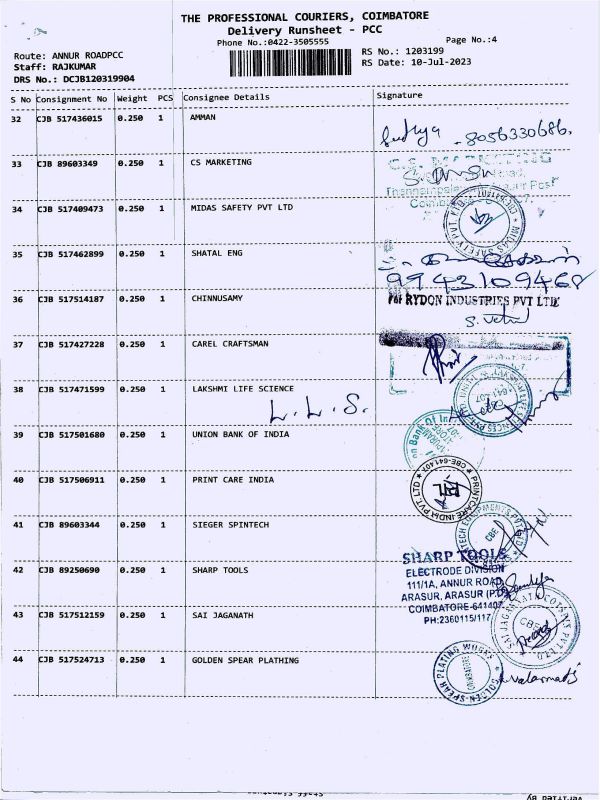 THE PROFESSIONAL COURIERS, COIMBATORE
Delivery Runsheet - PCC
Phone No.:0422-3505555
Page No.:4
Route: ANNUR ROADPCC
Staff: RAJKUMAR
DRS No.: DCJB120319904
RS No.: 1203199
RS Date: 10-Jul-2023
S No Consignment No Weight PCS Consignee Details Signature
32 CJB 517436015 0.250 1 AMMAN
8056330686.
33 CJB 89603349 0.250 1 CS MARKETING
C.S. MARKETING
34 CJB 517409473 0.250 1 MIDAS SAFETY PVT LTD
MIDAS SAFETY PVT LTD
35 CJB 517462899 0.250 1 SHATAL ENG
9943109468
36 CJB 517514187 0.250 1 CHINNUSAMY
For RYDON INDUSTRIES PVT LTD
37 CJB 517427228 0.250 1 CAREL CRAFTSMAN
38 CJB 517471599 0.250 1 LAKSHMI LIFE SCIENCE
L.L.S.
39 CJB 517501680 0.250 1 UNION BANK OF INDIA
40 CJB 517506911 0.250 1 PRINT CARE INDIA
PRINTCARE INDIA PVT LTD CBE-641407
41 CJB 89603344 0.250 1 SIEGER SPINTECH
CBE
42 CJB 89250690 0.250 1 SHARP TOOLS
SHARP TOOLS
ELECTRODE DIVISION
111/1A, ANNUR ROAD,
ARASUR, ARASUR (P.O)
COIMBATORE-641407
PH:2360115/117
43 CJB 517512159 0.250 1 SAI JAGANATH
CBE
44 CJB 517524713 0.250 1 GOLDEN SPEAR PLATHING
GOLDEN-SPEAR PLATING WORKS
COIMBATORE